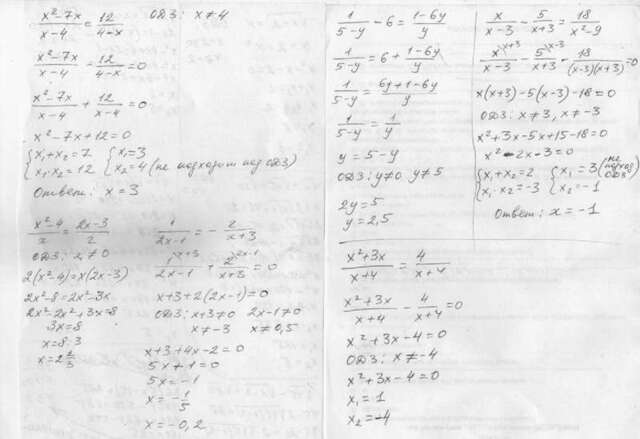 x²-7x/x-4 = 12/4-x ОДЗ: x≠4
x²-7x/x-4 - 12/4-x = 0
x²-7x/x-4 + 12/x-4 = 0
x²-7x+12=0
{x₁+x₂=7 {x₁=3
{x₁·x₂=12 {x₂=4 (не подходит под ОДЗ)
Ответ: x=3
x²-4/x = 2x-3/2
ОДЗ: x≠0
2(x²-4)=x(2x-3)
2x²-8=2x²-3x
2x²-2x²+3x=8
3x=8
x=8:3
x=2 2/3
1/2x-1 = - 2/x+3
1/2x-1 + 2/x+3 = 0
x+3+2(2x-1)=0
ОДЗ: x+3≠0 2x-1≠0
x≠-3 x≠0,5
x+3+4x-2=0
5x+1=0
5x=-1
x=-1/5
x=-0,2
1/5-y - 6 = 1-6y/y
1/5-y = 6 + 1-6y/y
1/5-y = 6y+1-6y/y
1/5-y = 1/y
y=5-y
ОДЗ: y≠0 y≠5
2y=5
y=2,5
x/x-3 - 5/x+3 = 18/x²-9
x/x-3 - 5/x+3 - 18/(x-3)(x+3) = 0
x(x+3)-5(x-3)-18=0
ОДЗ: x≠3, x≠-3
x²+3x-5x+15-18=0
x²-2x-3=0
{x₁+x₂=2 {x₁=3 (не подход ОДЗ)
{x₁·x₂=-3 {x₂=-1
Ответ: x=-1
x²+3x/x+4 = 4/x+4
x²+3x/x+4 - 4/x+4 = 0
x²+3x-4=0
ОДЗ: x≠-4
x²+3x-4=0
x₁=1
x₂=-4